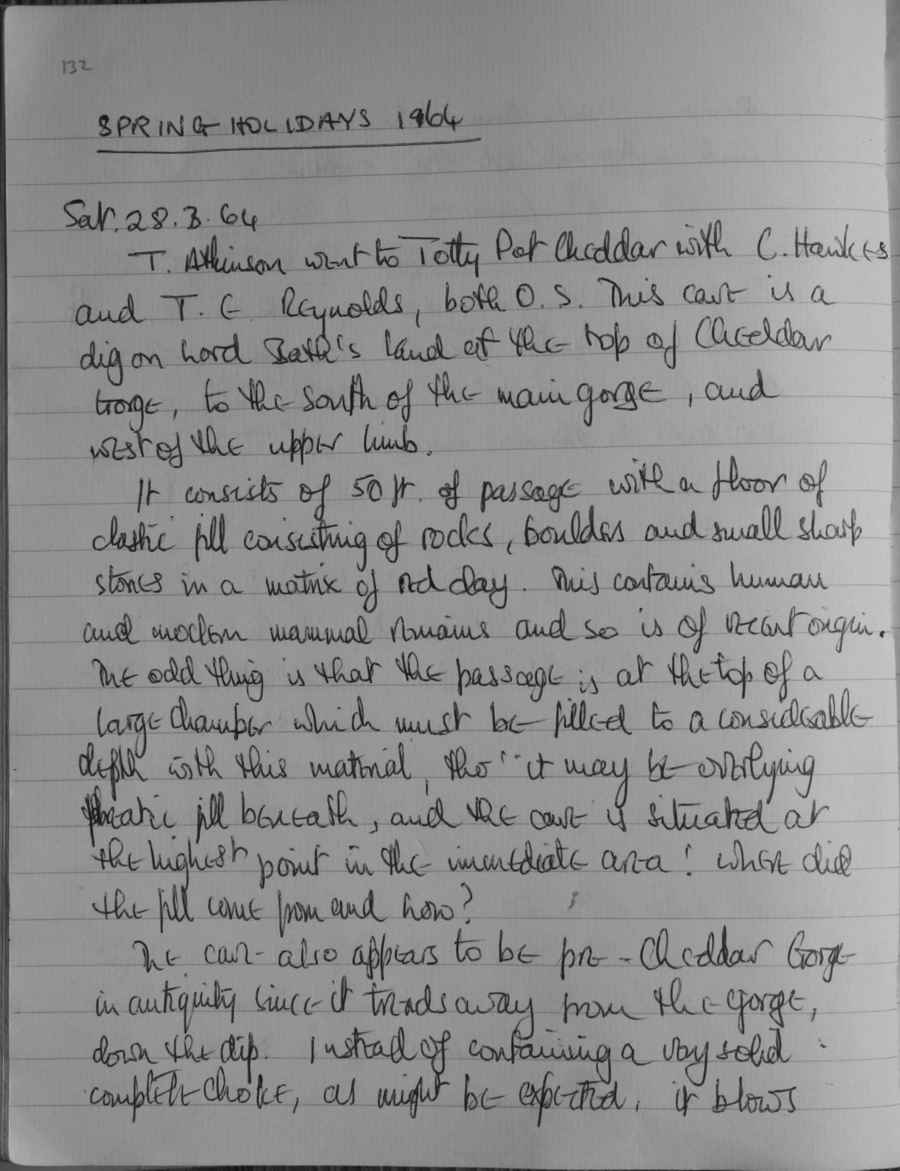 132
SPRING HOLIDAYS 1964
Sat. 28.3.64
T. Atkinson went to Totty Pot Cheddar with C. Hawkes
and T. E. Reynolds, both O.S. This cave is a
dig on Lord Bath's land at the top of Cheddar
Gorge, to the south of the main gorge, and
west of the upper limb.
It consists of 50 ft. of passage with a floor of
clastic fill consisting of rocks, boulders and small sharp
stones in a matrix of red clay. This contains human
and modern mammal remains and so is of recent origin.
The odd thing is that the passage is at the top of a
large chamber which must be filled to a considerable
depth with this material, tho' it may be overlying
phreatic fill beneath, and the cave is situated at
the highest point in the immediate area! Where did
the fill come from and how?
The cave also appears to be pre-Cheddar Gorge
in antiquity since it trends away from the gorge,
down the dip. Instead of containing a very solid
complete choke, as might be expected, it blows